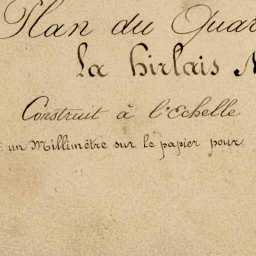 Plan du Quar
La hirlais N
Construit à l'Echelle
un Millimètre sur le papier pour